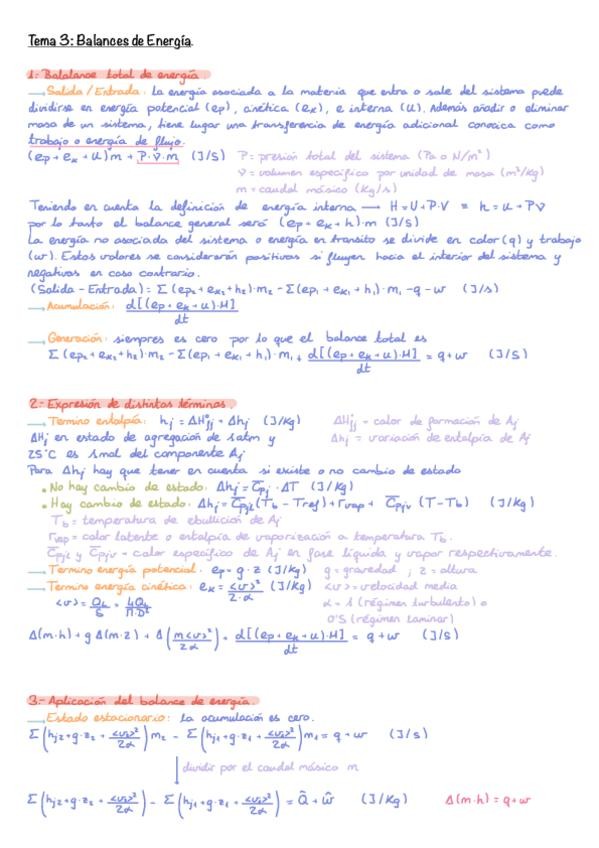 Tema 3: Balances de Energía.
1: Balalance total de energía
→ Salida / Entrada: la energía asociada a la materia que entra o sale del sistema puede
dividirse en energía potencial (ep), cinética (eₖ), e interna (u). Además añadir o eliminar
masa de un sistema, tiene lugar una transferencia de energía adicional conocica como
trabajo o energía de flujo.
(ep + eₖ + u) m + P · v̂ · m (J/S) P = presión total del sistema (Pa o N/m²)
v̂ = volumen específico por unidad de masa (m³/kg)
m = caudal másico (Kg/s)
Teniendo en cuenta la definición de energía interna → H = U + P·V ≡ h = u + Pv̂
por lo tanto el balance general será (ep + eₖ + h) · m (J/S)
La energía no asociada del sistema o energía en transito se divide en calor (q) y trabajo
(w). Estos valores se considerarán positivas si fluyen hacia el interior del sistema y
negativas en caso contrario.
(Salida - Entrada) = Σ (ep₂ + eₖ₂ + h₂) · m₂ - Σ (ep₁ + eₖ₁ + h₁) · m₁ - q - w (J/s)
→ Acumulación: d[(ep + eₖ + u) · M] / dt
→ Generación: siempres es cero por lo que el balance total es
Σ (ep₂ + eₖ₂ + h₂) · m₂ - Σ (ep₁ + eₖ₁ + h₁) · m₁ + d[(ep + eₖ + u) · M] / dt = q + w (J/S)
2.- Expresión de distintos términos.
→ Termino entalpía: hⱼ = ΔH°fj + Δhⱼ (J/Kg) ΔH°fj = calor de formación de Aj
ΔHⱼ en estado de agregación de 1 atm y Δhⱼ = variación de entalpía de Aj
25°C es 1mol del componente Aj
Para Δhⱼ hay que tener en cuenta si existe o no cambio de estado
• No hay cambio de estado: Δhⱼ = C̅pj · ΔT (J/Kg)
• Hay cambio de estado: Δhⱼ = C̅pjl (Tb - Tref) + rvap + C̅pjv (T - Tb) (J/Kg)
Tb = temperatura de ebullición de Aj
rvap = calor latente o entalpía de vaporización a temperatura Tb.
C̅pjl y C̅pjv = calor específico de Aj en fase líquida y vapor respectivamente.
→ Termino energía potencial: ep = g · z (J/Kg) g = gravedad ; z = altura
→ Termino energía cinética: eₖ = <v>² / 2·α (J/Kg) <v> = velocidad media
<v> = Qᵥ / S = 4Qᵥ / Π·D² α = 1 (régimen turbulento) o
0'5 (régimen laminar)
Δ(m·h) + g Δ(m·z) + Δ (m<v>² / 2α) + d[(ep + eₖ + u) · M] / dt = q + w (J/S)
3.- Aplicación del balance de energía.
→ Estado estacionario: la acumulación es cero.
Σ (hj₂ + g·z₂ + <v₂>² / 2α) m₂ - Σ (hj₁ + g·z₁ + <v₁>² / 2α) m₁ = q + w (J/S)
dividir por el caudal másico m
Σ (hj₂ + g·z₂ + <v₂>² / 2α) - Σ (hj₁ + g·z₁ + <v₁>² / 2α) = Q̂ + Ŵ (J/Kg) Δ(m·h) = q + w